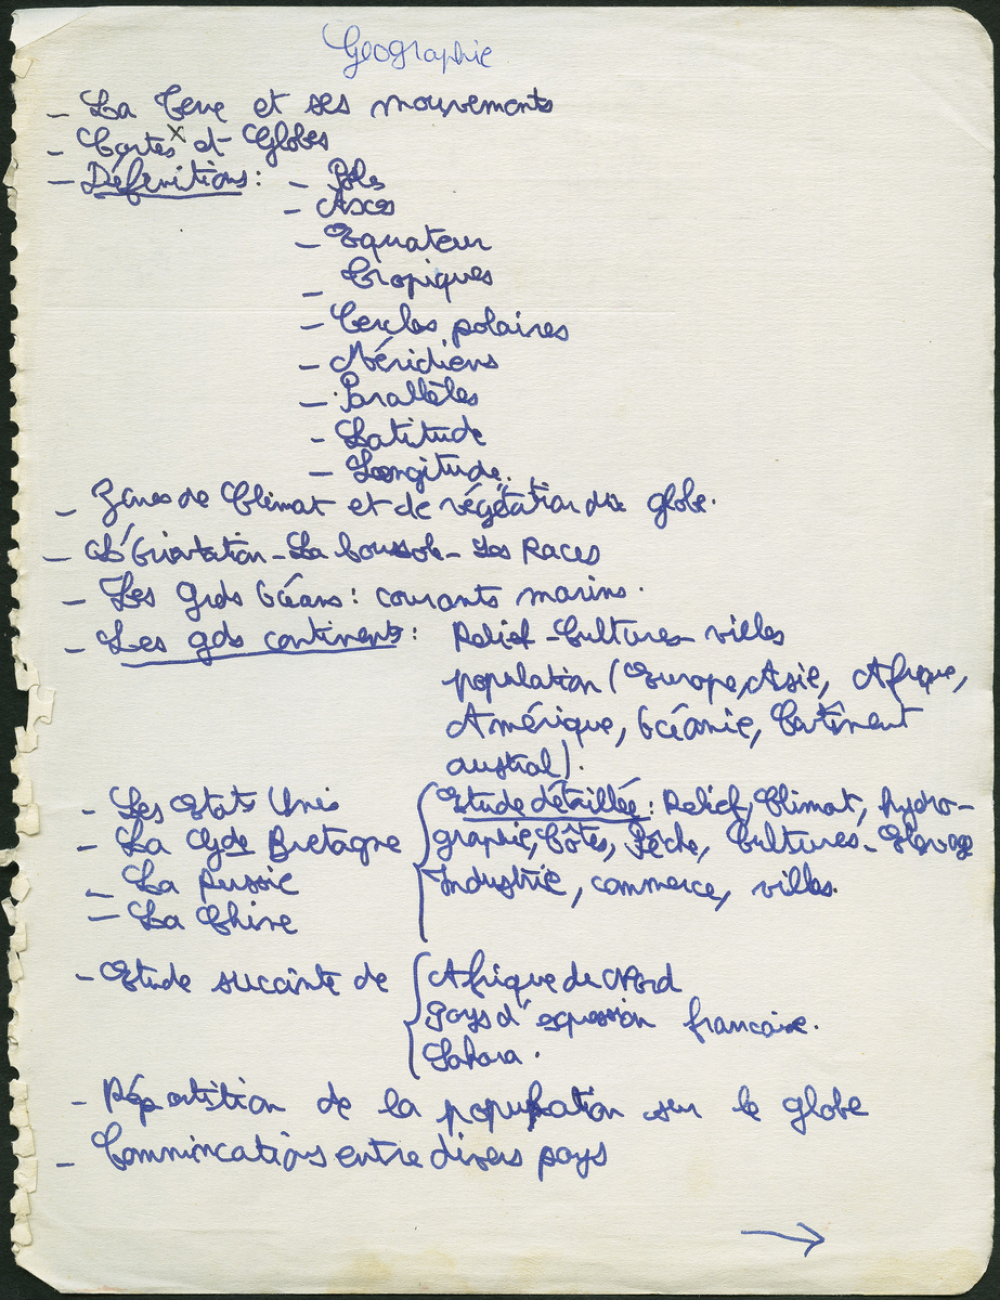 Géographie
- La Terre et ses mouvements
- Cartes et Globes
- Définitions : - Pôles
- Axes
- Equateur
- Tropiques
- Cercles polaires
- Méridiens
- Parallèles
- Latitude
- Longitude.
- Zones de Climat et de végétation du globe.
- L'Orientation - La boussole - Les Races
- Les grds Océans : courants marins.
- Les gds continents : Relief - Cultures - villes
population (Europe, Asie, Afrique,
Amérique, Océanie, Continent
austral).
- Les Etats Unis { Etude détaillée : Relief, Climat, hydro-
- La Gde Bretagne graphie, Côtes, Pêche, Cultures - Elevage
- La Russie Industrie, commerce, villes.
- La Chine
- Etude succinte de { Afrique du Nord
Pays d'expression francaise.
Sahara.
- Répartition de la population sur le globe
- Communications entre divers pays
→